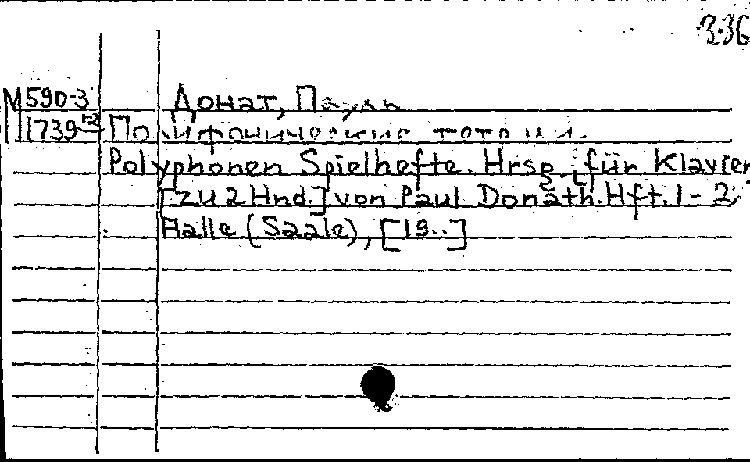 3-36
М590-3 Донат, Пауль
1739 Полифонические тетради.
Polyphonen Spielhefte. Hrsg. für Klavier
[zu 2 Hnd.] von Paul Donath. Hft. 1-2.
Halle (Saale), [19..]